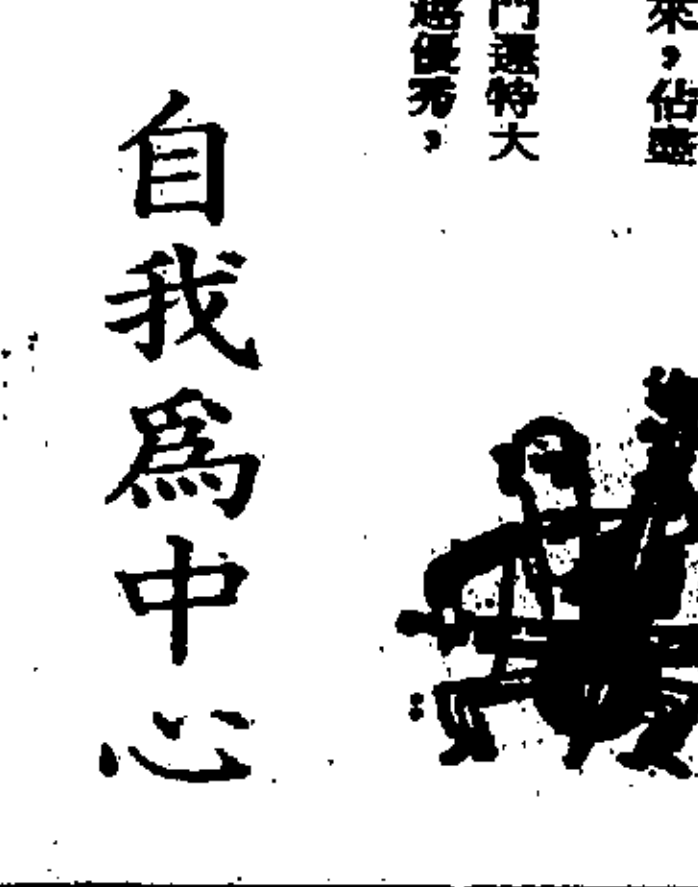 來，佔盡
門還特大
越優秀，
自我為中心